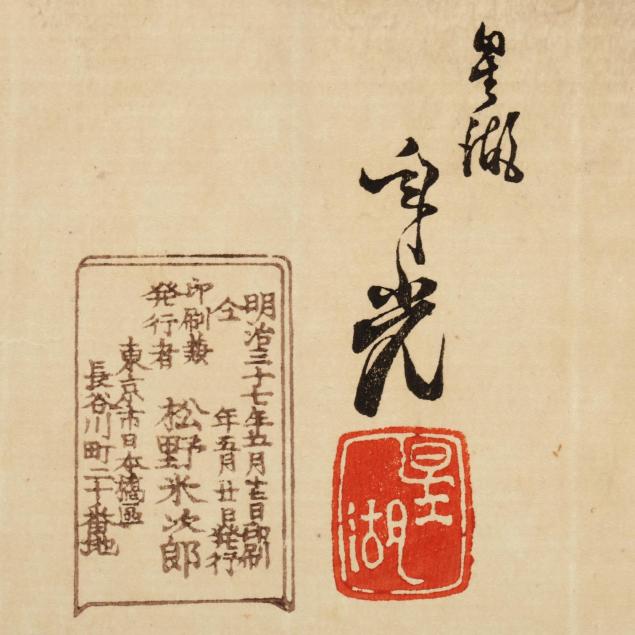 星湖
年光
星湖
明治三十七年五月 日印刷
仝年五月廿日発行
印刷兼
発行者
松野米次郎
東京市日本橋區
長谷川町二十番地